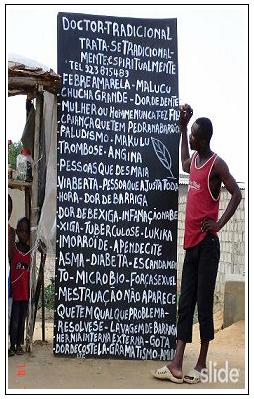 DOCTOR-TRADICIONAL
TRATA-SE TRADICIONAL-
MENTE E SPIRITUALMENTE
TEL 923 815489
FEBRE AMARELA - MALUCU
CHUCHA GRANDE - DOR DE DENTE
-MULHER OU HOMEM NUNCA FEZ FILHO
CRIANÇA QUE TEM PEDRA NA BARRIGA
PALUDISMO - MAKULU
TROMBOSE - ANGINA
PESSOAS QUE DESMAIA
VIA BEATA - PESSOA QUE AJUSTA TODA
HORA - DOR DE BARRIGA
DOR DE BEXIGA - INFAMAÇÃO NA BE-
XIGA - TUBERCULOSE - LUKIKA
IMORROIDE - APENDECITE
ASMA - DIABETA - ESCANDAMEN
TO - MICROBIO - FORÇA SEXUAL
MESTRUAÇÃO NÃO APARECE
QUE TEM QUALQUE PROBLEMA
RESOLVE SE - LAVAGEM DE BARRIGA
HERNIA INTERNA EXTERNA - GOTA
DOR DE COSTELA - GRAMATISMO
slide